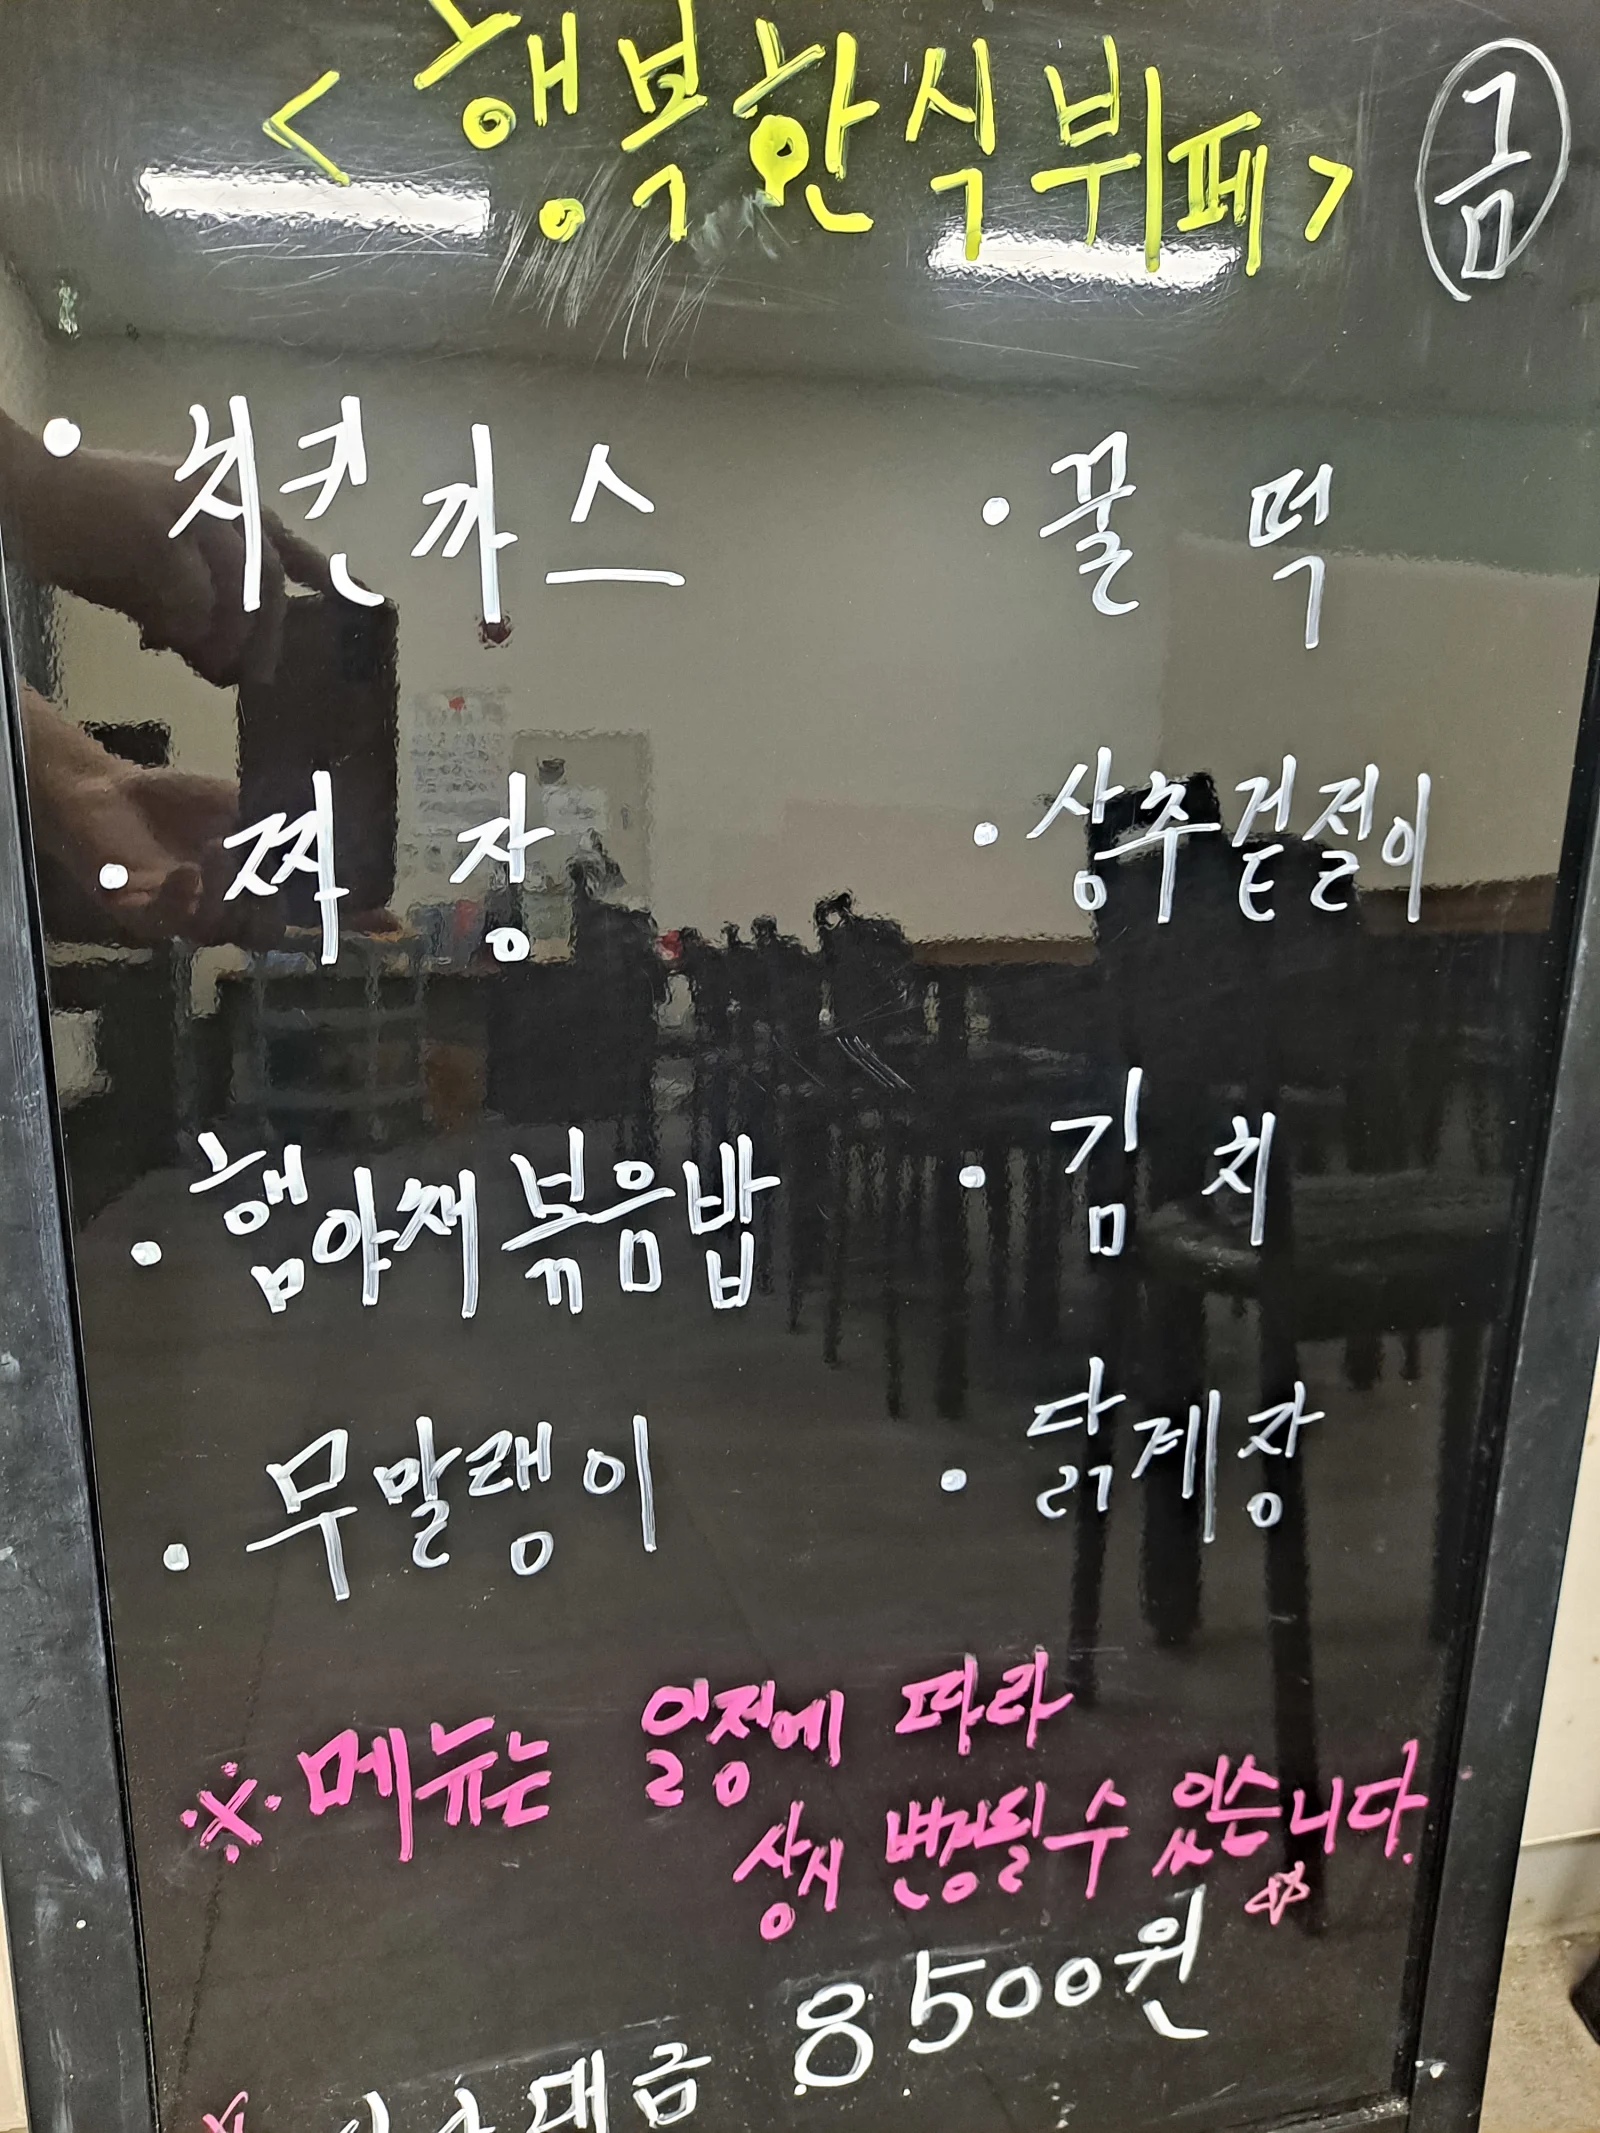 <행복한식뷔페> 금
· 치킨까스
· 꿀떡
· 짜장
· 상추겉절이
· 햄야채볶음밥
· 김치
· 무말랭이
· 닭계장
※ 메뉴는 일정에 따라
상시 변경될 수 있습니다.
대금 8500원